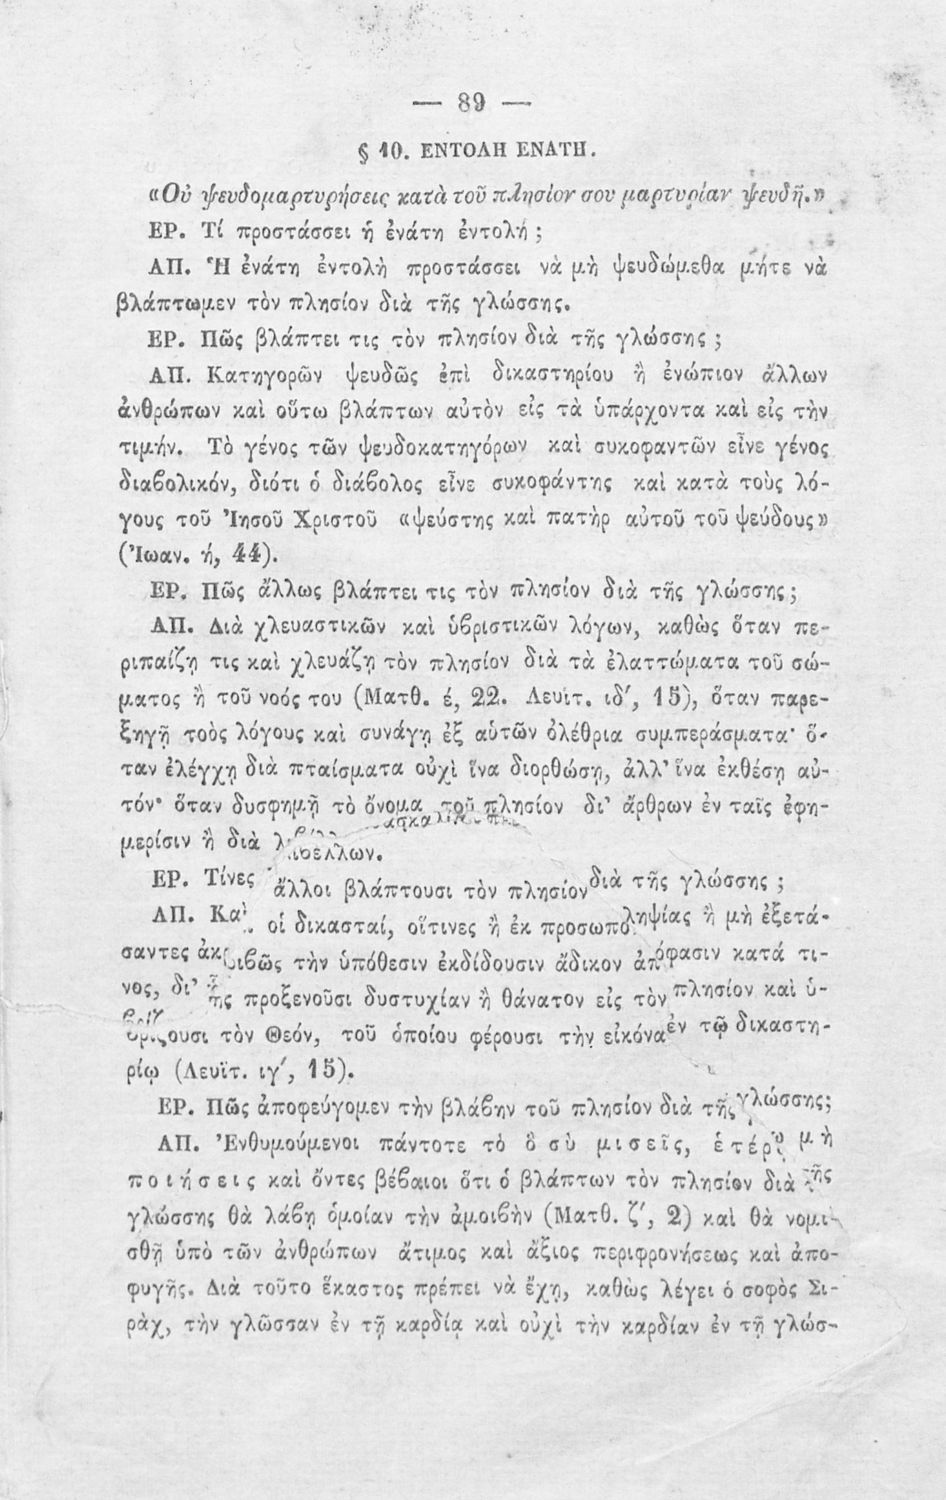 — 89 —
§ 10. ΕΝΤΟΛΗ ΕΝΑΤΗ.
«Οὐ ψευδομαρτυρήσεις κατὰ τοῦ πλησίον σου μαρτυρίαν ψευδῆ.»
ΕΡ. Τί προστάσσει ἡ ἐνάτη ἐντολή ;
ΑΠ. Ἡ ἐνάτη ἐντολὴ προστάσσει νὰ μὴ ψευδώμεθα μήτε νὰ
βλάπτωμεν τὸν πλησίον διὰ τῆς γλώσσης.
ΕΡ. Πῶς βλάπτει τις τὸν πλησίον διὰ τῆς γλώσσης ;
ΑΠ. Κατηγορῶν ψευδῶς ἐπὶ δικαστηρίου ἢ ἐνώπιον ἄλλων
ἀνθρώπων καὶ οὕτω βλάπτων αὐτὸν εἰς τὰ ὑπάρχοντα καὶ εἰς τὴν
τιμήν. Τὸ γένος τῶν ψευδοκατηγόρων καὶ συκοφαντῶν εἶνε γένος
διαβολικόν, διότι ὁ διάβολος εἶνε συκοφάντης καὶ κατὰ τοὺς λό-
γους τοῦ Ἰησοῦ Χριστοῦ «ψεύστης καὶ πατὴρ αὐτοῦ τοῦ ψεύδους»
(Ἰωαν. ή, 44).
ΕΡ. Πῶς ἄλλως βλάπτει τις τὸν πλησίον διὰ τῆς γλώσσης;
ΑΠ. Διὰ χλευαστικῶν καὶ ὑβριστικῶν λόγων, καθὼς ὅταν πε-
ριπαίζῃ τις καὶ χλευάζῃ τὸν πλησίον διὰ τὰ ἐλαττώματα τοῦ σώ-
ματος ἢ τοῦ νοός του (Ματθ. έ, 22. Λευϊτ. ιδ', 15), ὅταν παρε-
ξηγῇ τοὺς λόγους καὶ συνάγῃ ἐξ αὐτῶν ὀλέθρια συμπεράσματα· ὅ-
ταν ἐλέγχῃ διὰ πταίσματα οὐχὶ ἵνα διορθώσῃ, ἀλλ' ἵνα ἐκθέσῃ αὐ-
τόν· ὅταν δυσφημῇ τὸ ὄνομα τοῦ πλησίον δι' ἄρθρων ἐν ταῖς ἐφη-
μερίσιν ἢ διὰ λιβέλλων.
ΕΡ. Τίνες ἄλλοι βλάπτουσι τὸν πλησίον διὰ τῆς γλώσσης ;
ΑΠ. Καὶ οἱ δικασταί, οἵτινες ἢ ἐκ προσωποληψίας ἢ μὴ ἐξετά-
σαντες ἀκριβῶς τὴν ὑπόθεσιν ἐκδίδουσιν ἄδικον ἀπόφασιν κατά τι-
νος, δι' ἧς προξενοῦσι δυστυχίαν ἢ θάνατον εἰς τὸν πλησίον καὶ ὑ-
βρίζουσι τὸν Θεόν, τοῦ ὁποίου φέρουσι τὴν εἰκόνα ἐν τῷ δικαστη-
ρίῳ (Λευϊτ. ιγ', 15).
ΕΡ. Πῶς ἀποφεύγομεν τὴν βλάβην τοῦ πλησίον διὰ τῆς γλώσσης;
ΑΠ. Ἐνθυμούμενοι πάντοτε τὸ ὃ σὺ μισεῖς, ἑτέρῳ μὴ
ποιήσεις καὶ ὄντες βέβαιοι ὅτι ὁ βλάπτων τὸν πλησίον διὰ τῆς
γλώσσης θὰ λάβῃ ὁμοίαν τὴν ἀμοιβὴν (Ματθ. ζ', 2) καὶ θὰ νομι-
σθῇ ὑπὸ τῶν ἀνθρώπων ἄτιμος καὶ ἄξιος περιφρονήσεως καὶ ἀπο-
φυγῆς. Διὰ τοῦτο ἕκαστος πρέπει νὰ ἔχῃ, καθὼς λέγει ὁ σοφὸς Σι-
ράχ, τὴν γλῶσσαν ἐν τῇ καρδίᾳ καὶ οὐχὶ τὴν καρδίαν ἐν τῇ γλώσ-